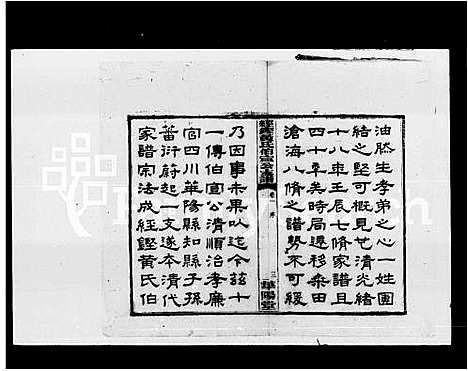 油然生孝弟之心一姓團
結之堅可概見茲清炎緒
十八年壬辰七脩家譜且
四十年矣時局遷移桑田
滄海八脩之譜勢不可緩
經鏗黃氏伯宣公支譜
卷一 序
三
華陽堂
乃因事未果以迄今茲十
一傳伯宣公清順治孝廉
宦四川華陽縣知縣子孫
蕃衍蔚起一支遂本清代
家譜宗法成經鏗黃氏伯